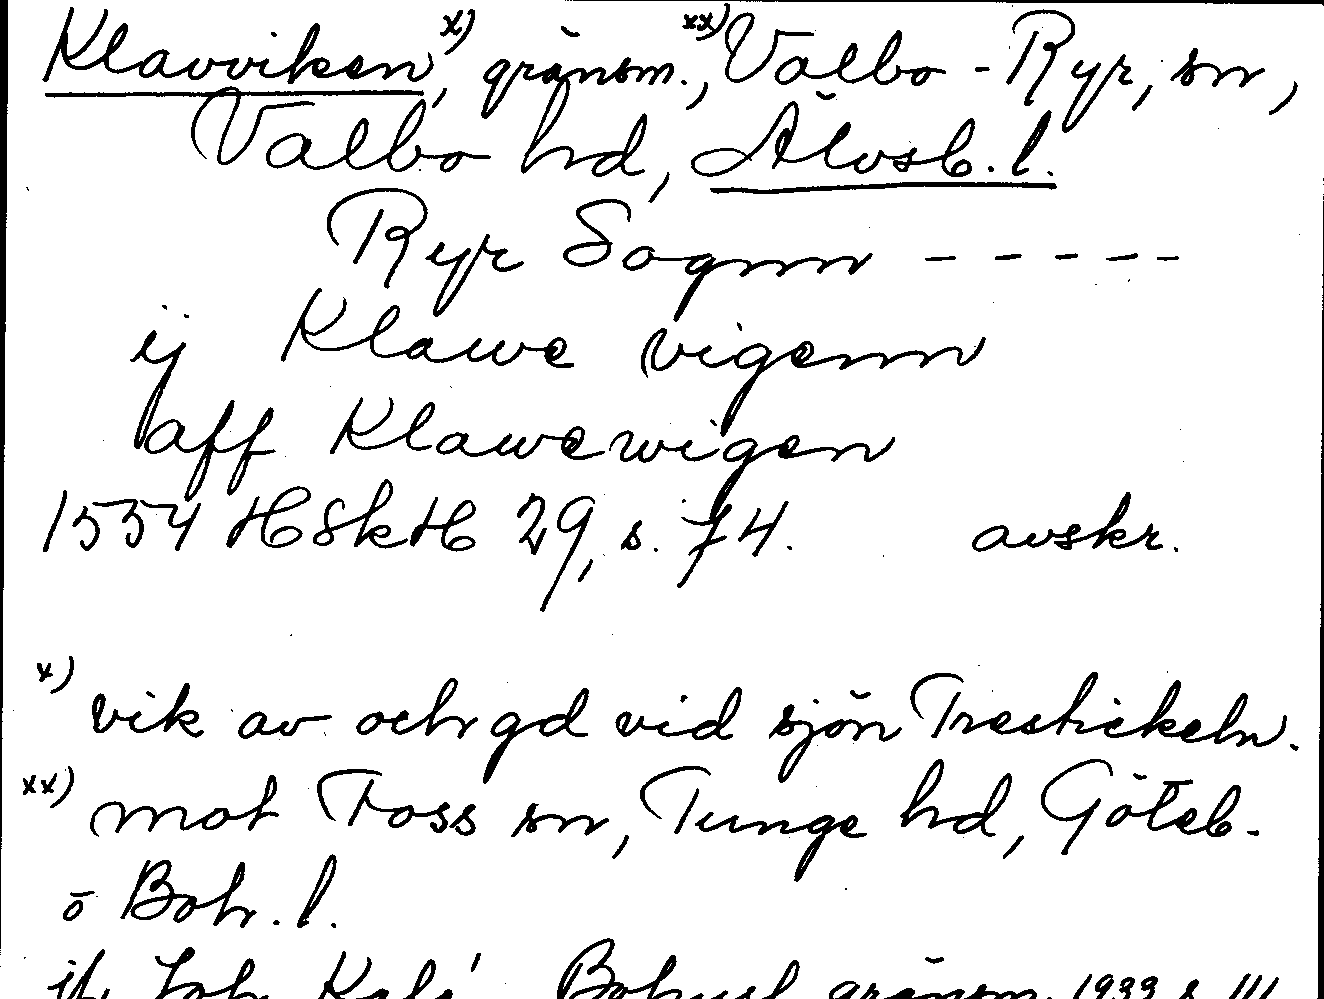 Klavviken x), gränsm., xx) Valbo-Ryr, sn,
Valbo hd, Älvsb. l.
Ryr Sognn - - - - -
ij Klawe vigenn
aff Klawewigen
1554 HSkH 29, s. 74. avskr.
x) vik av och gd vid sjön Trestickeln.
xx) mot Foss sn, Tunge hd, Göteb.
o Boh. l.
jfr Joh. Kalé Bohusl gränsm. 1933 s. 111